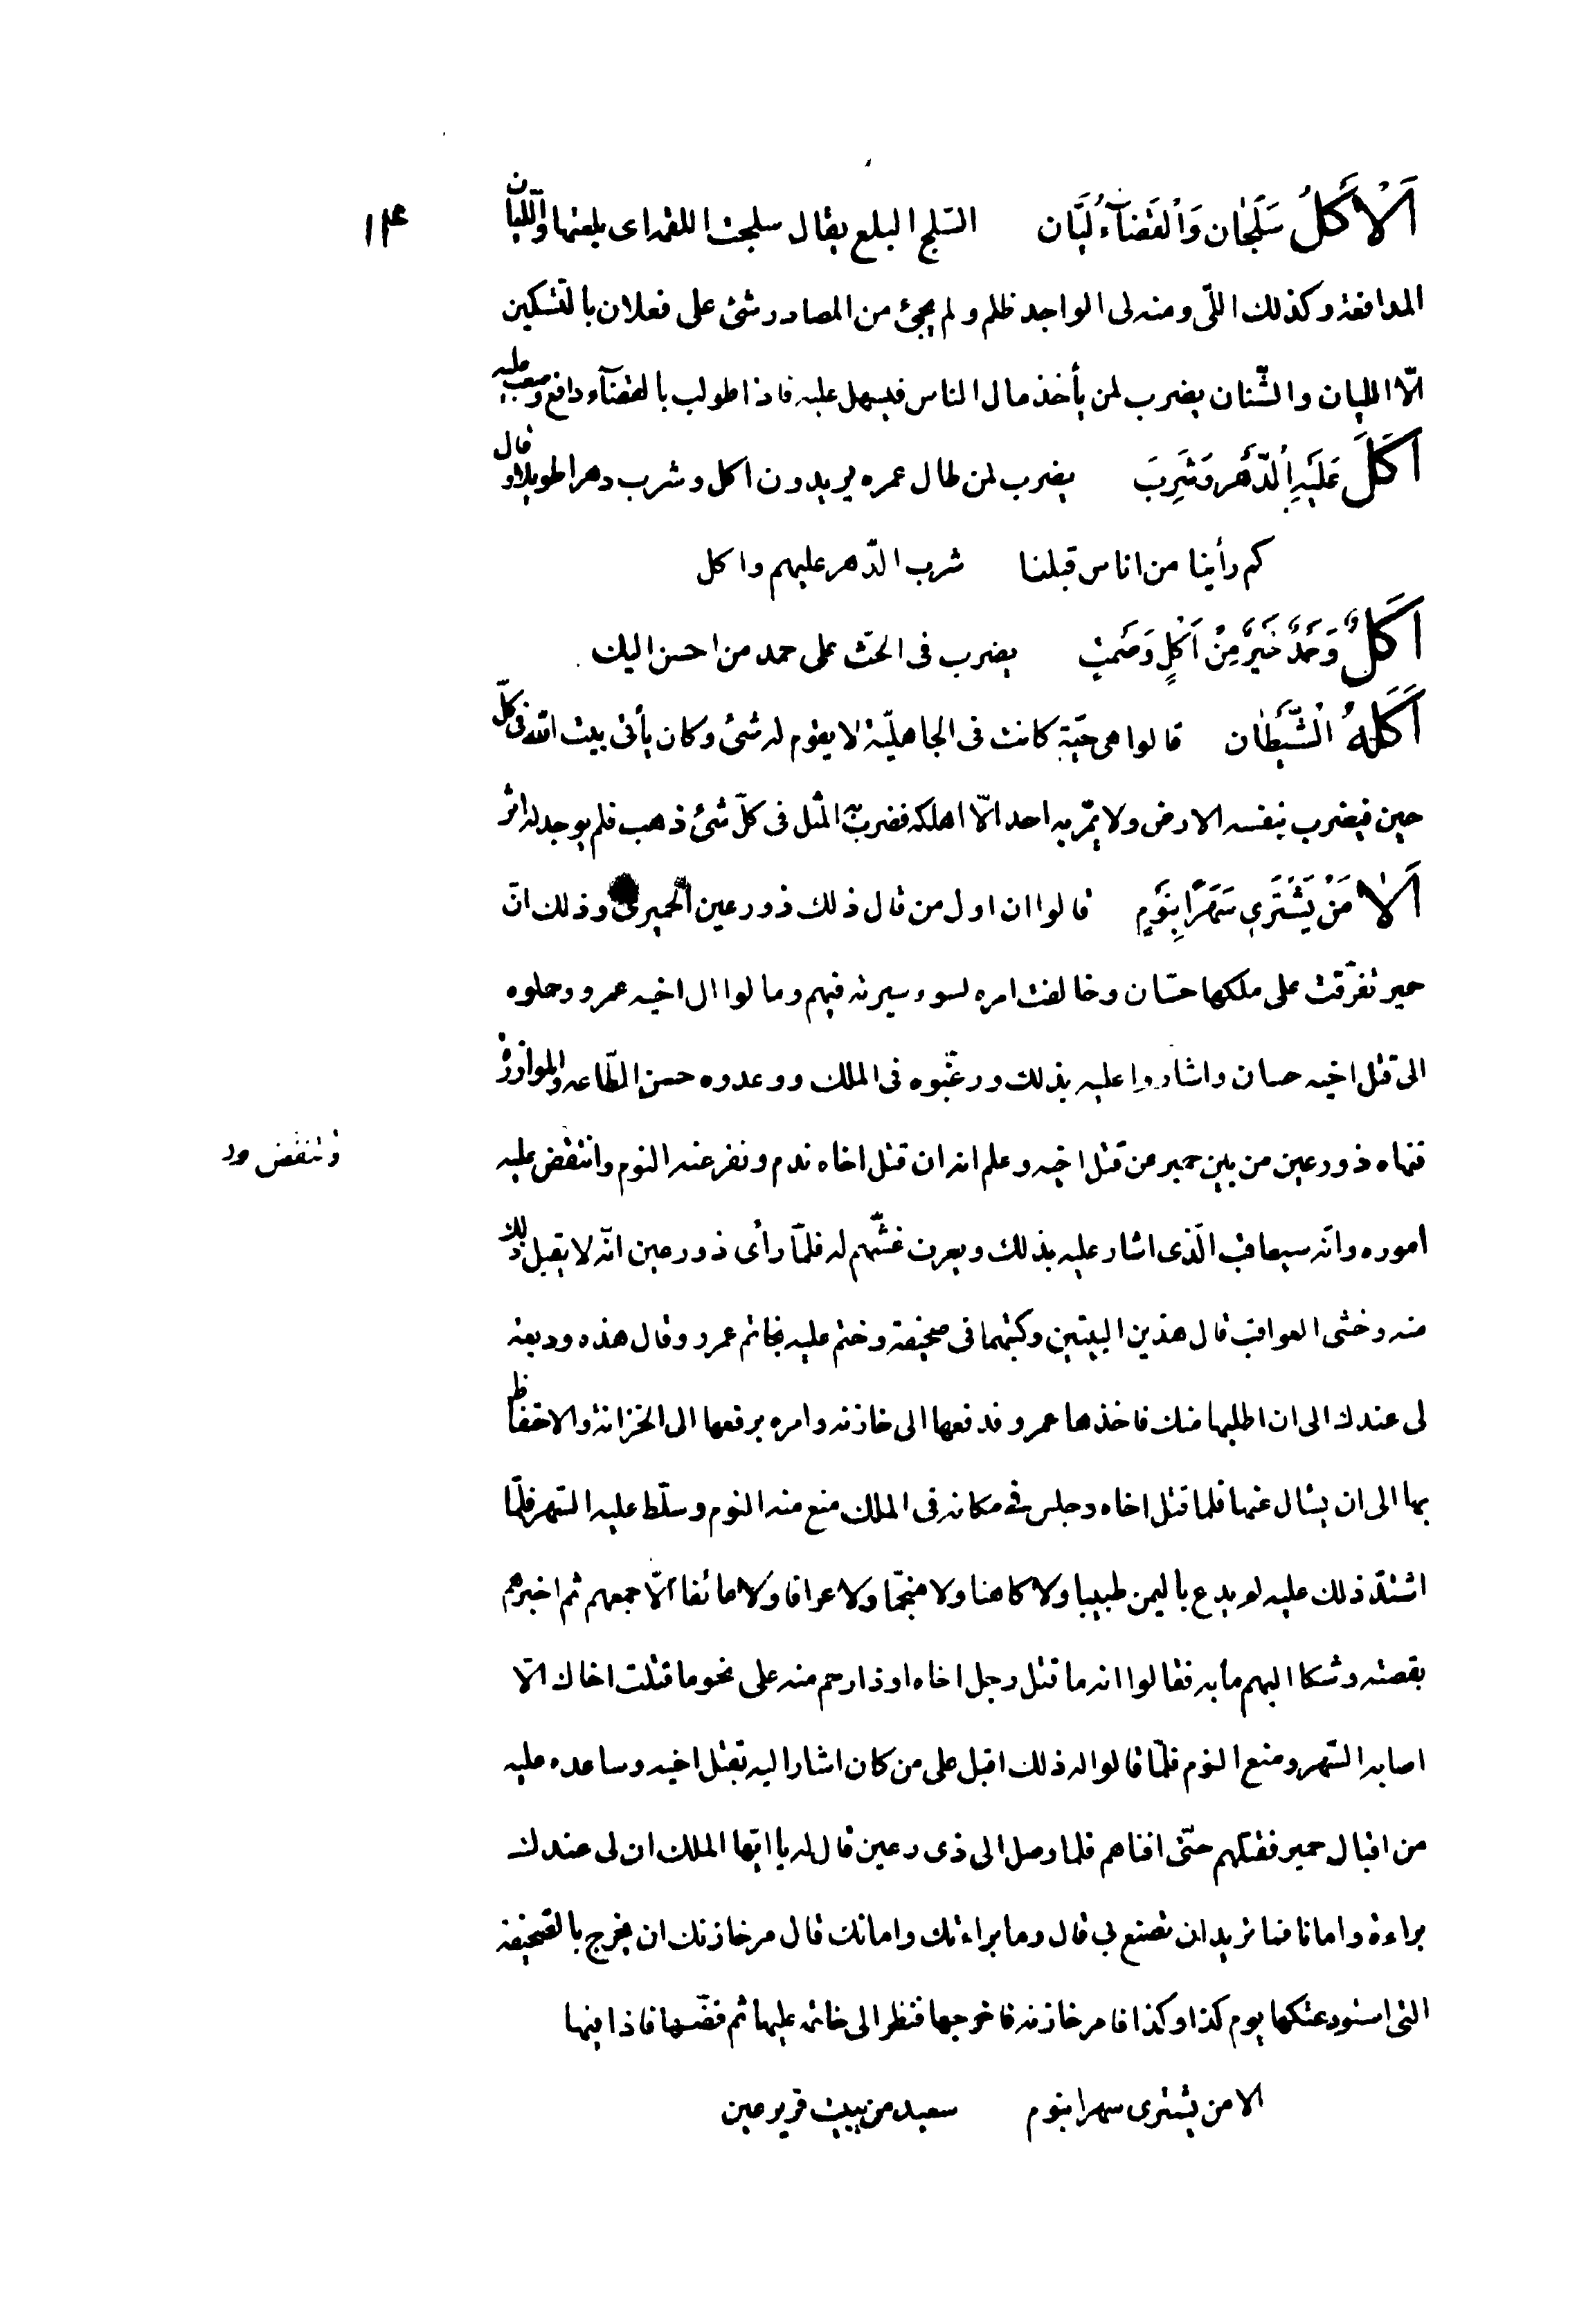 اَلْاَكْلُ سَلَجَان وَالْقَضَآءُ لَيَّان السّلج البلع يقال سلجت اللقمة اى بلعتها واللّيان
١١٤
المدافعة وكذلك اللّى ومنه لى الواجد ظلم ولم يجئ من المصادر شئ على فعلان بالتسكين
الّا الليان والشّنان يضرب لمن يأخذ مال الناس فيسهل عليه فاذا طولب بالقضآء دافع وصعب عليه
اَكَلَ عَلَيْهِ الدَّهْرُ وَشَرِبَ يضرب لمن طال عمره يريدون اكل وشرب دهرا طويلا وقال
كم رأينا من اناس قبلنا شرب الدّهر عليهم واكل
اَكْلٌ وَحَمْدٌ خَيْرٌ مِنْ اَكْلٍ وَصَمْتٍ يضرب فى الحثّ على حمد من احسن اليك
اَكَلَهُ الْشَّيْطَان قالوا هى حيّة كانت فى الجاهليّة لا يقوم له شئ وكان يأتى بيت الله فى كلّ
حين فيضرب بنفسه الارض ولا يمّر به احد الّا اهلكه فضرب به المثل فى كلّ شئ ذهب فلم يوجد له اثر
اَلا مَنْ يَشْتَرِى سَهَرًا بِنَوْمٍ قالوا ان اول من قال ذلك ذو رعين الحميرى وذلك انّ
حمير تفرّقت على ملكها حسّان وخالفت امره لسوء سيرته فيهم ومالوا الى اخيه عمرو وحملوه
الى قتل اخيه حسان واشاروا عليه بذلك ورغّبوه فى الملك ووعدوه حسن الطّاعة والموازرة
فنهاه ذو رعين من بين حمير عن قتل اخيه وعلم انه ان قتل اخاه ندم ونفر عنه النوم وانتقض عليه
وتنتقض
اموره وانّه سيعاقب الّذى اشار عليه بذلك ويعرف غشّهم له فلمّا رأى ذو رعين انّه لا يقبل ذلك
منه وخشى العواقب قال هذين البيتين وكتبهما فى صحيفة وختم عليه بخاتم عمرو وقال هذه وديعة
لى عندك الى ان اطلبها منك فاخذها عمرو فدفعها الى خازنه وامره برفعها الى الخزانة والاحتفاظ
بها الى ان يسٔال عنها فلما قتل اخاه وجلس فى مكانه فى الملك منع منه النوم وسلّط عليه السّهر فلمّا
اشتدّ ذلك عليه لم يدع باليمن طبيبا ولا كاهنا ولا منجّما ولا عرافا ولا عائفا الّا جمعهم ثم اخبرهم
بقصته وشكا اليهم ما به فقالوا انه ما قتل رجل اخاه او ذا رحم منه على نحو ما قتلت اخاك الّا
اصابه السّهر ومنع النوم فلمّا قالوا له ذلك اقبل على من كان اشار اليه بقتل اخيه وساعده عليه
من اقيال حمير فقتلهم حتّى افناهم فلما وصل الى ذى رعين قال له يا ايّها الملك ان لى عندك
براءة وامانا مما تريد ان تصنع بى قال وما براءتك وامانك قال مر خازنك ان يخرج بالصّحيفة
التى استودعتكها يوم كذا وكذا فامر خازنه فاخرجها فنظر الى خاتمه عليها ثم فضّها فاذا فيها
الا من يشترى سهرا بنوم سعيد من يبيت قرير عين